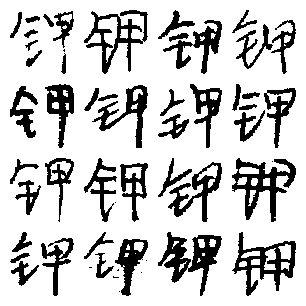 钾钾钾钾
钾钾钾钾
钾钾钾钾
钾钾钾钾